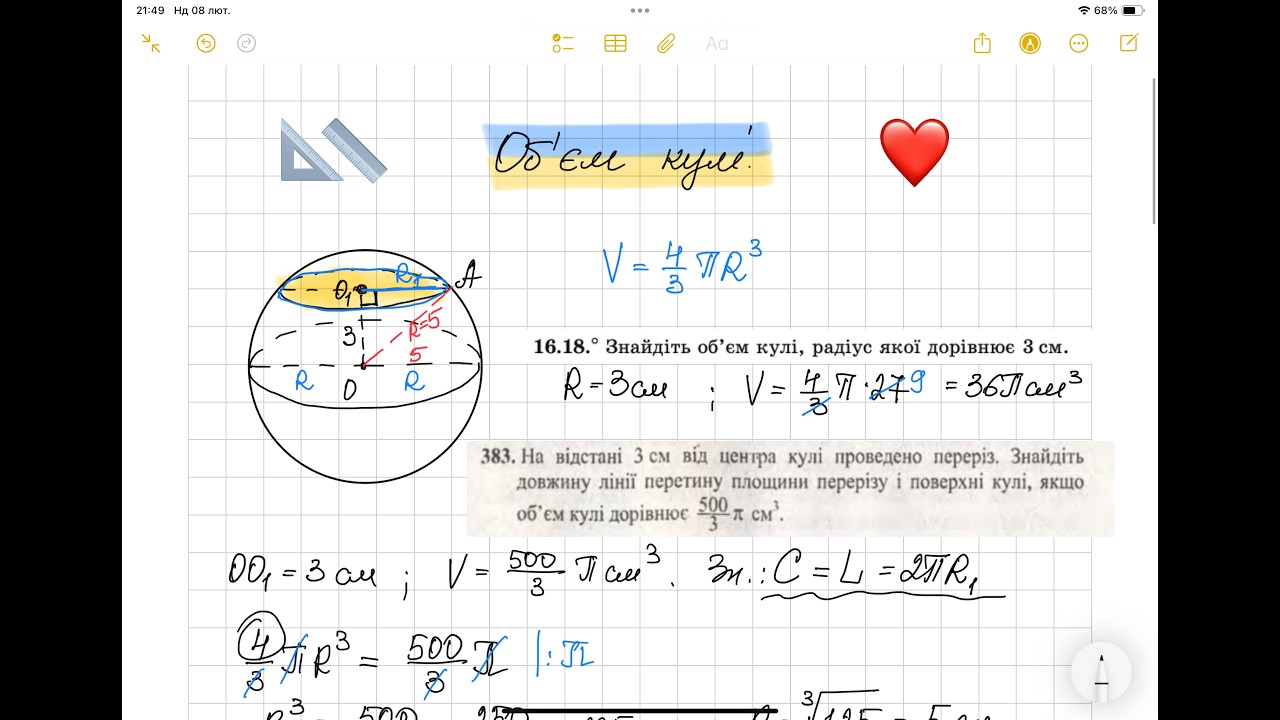 21:49 Нд 08 лют.
68%
Aa
Об'єм кулі.
V = 4/3 πR³
A
R₁
O₁
R=5
3
5
R O R
16.18.° Знайдіть об’єм кулі, радіус якої дорівнює 3 см.
R = 3 см ; V = 4/3 π · 27 9 = 36π см³
383. На відстані 3 см від центра кулі проведено переріз. Знайдіть
довжину лінії перетину площини перерізу і поверхні кулі, якщо
об’єм кулі дорівнює 500/3 π см³.
OO₁ = 3 см ; V = 500/3 π см³. Зн.: C = L = 2πR₁
4/3 πR³ = 500/3 π |: π